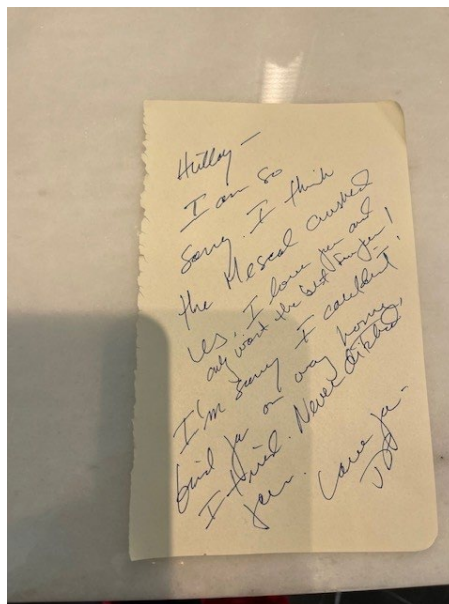 I am so
Sorry. I think
the Mescal crushed
us. I love you and
only want the best for you!
I'm sorry I couldn't
find you on way home,
I tried. Never ditched
you. Love you.